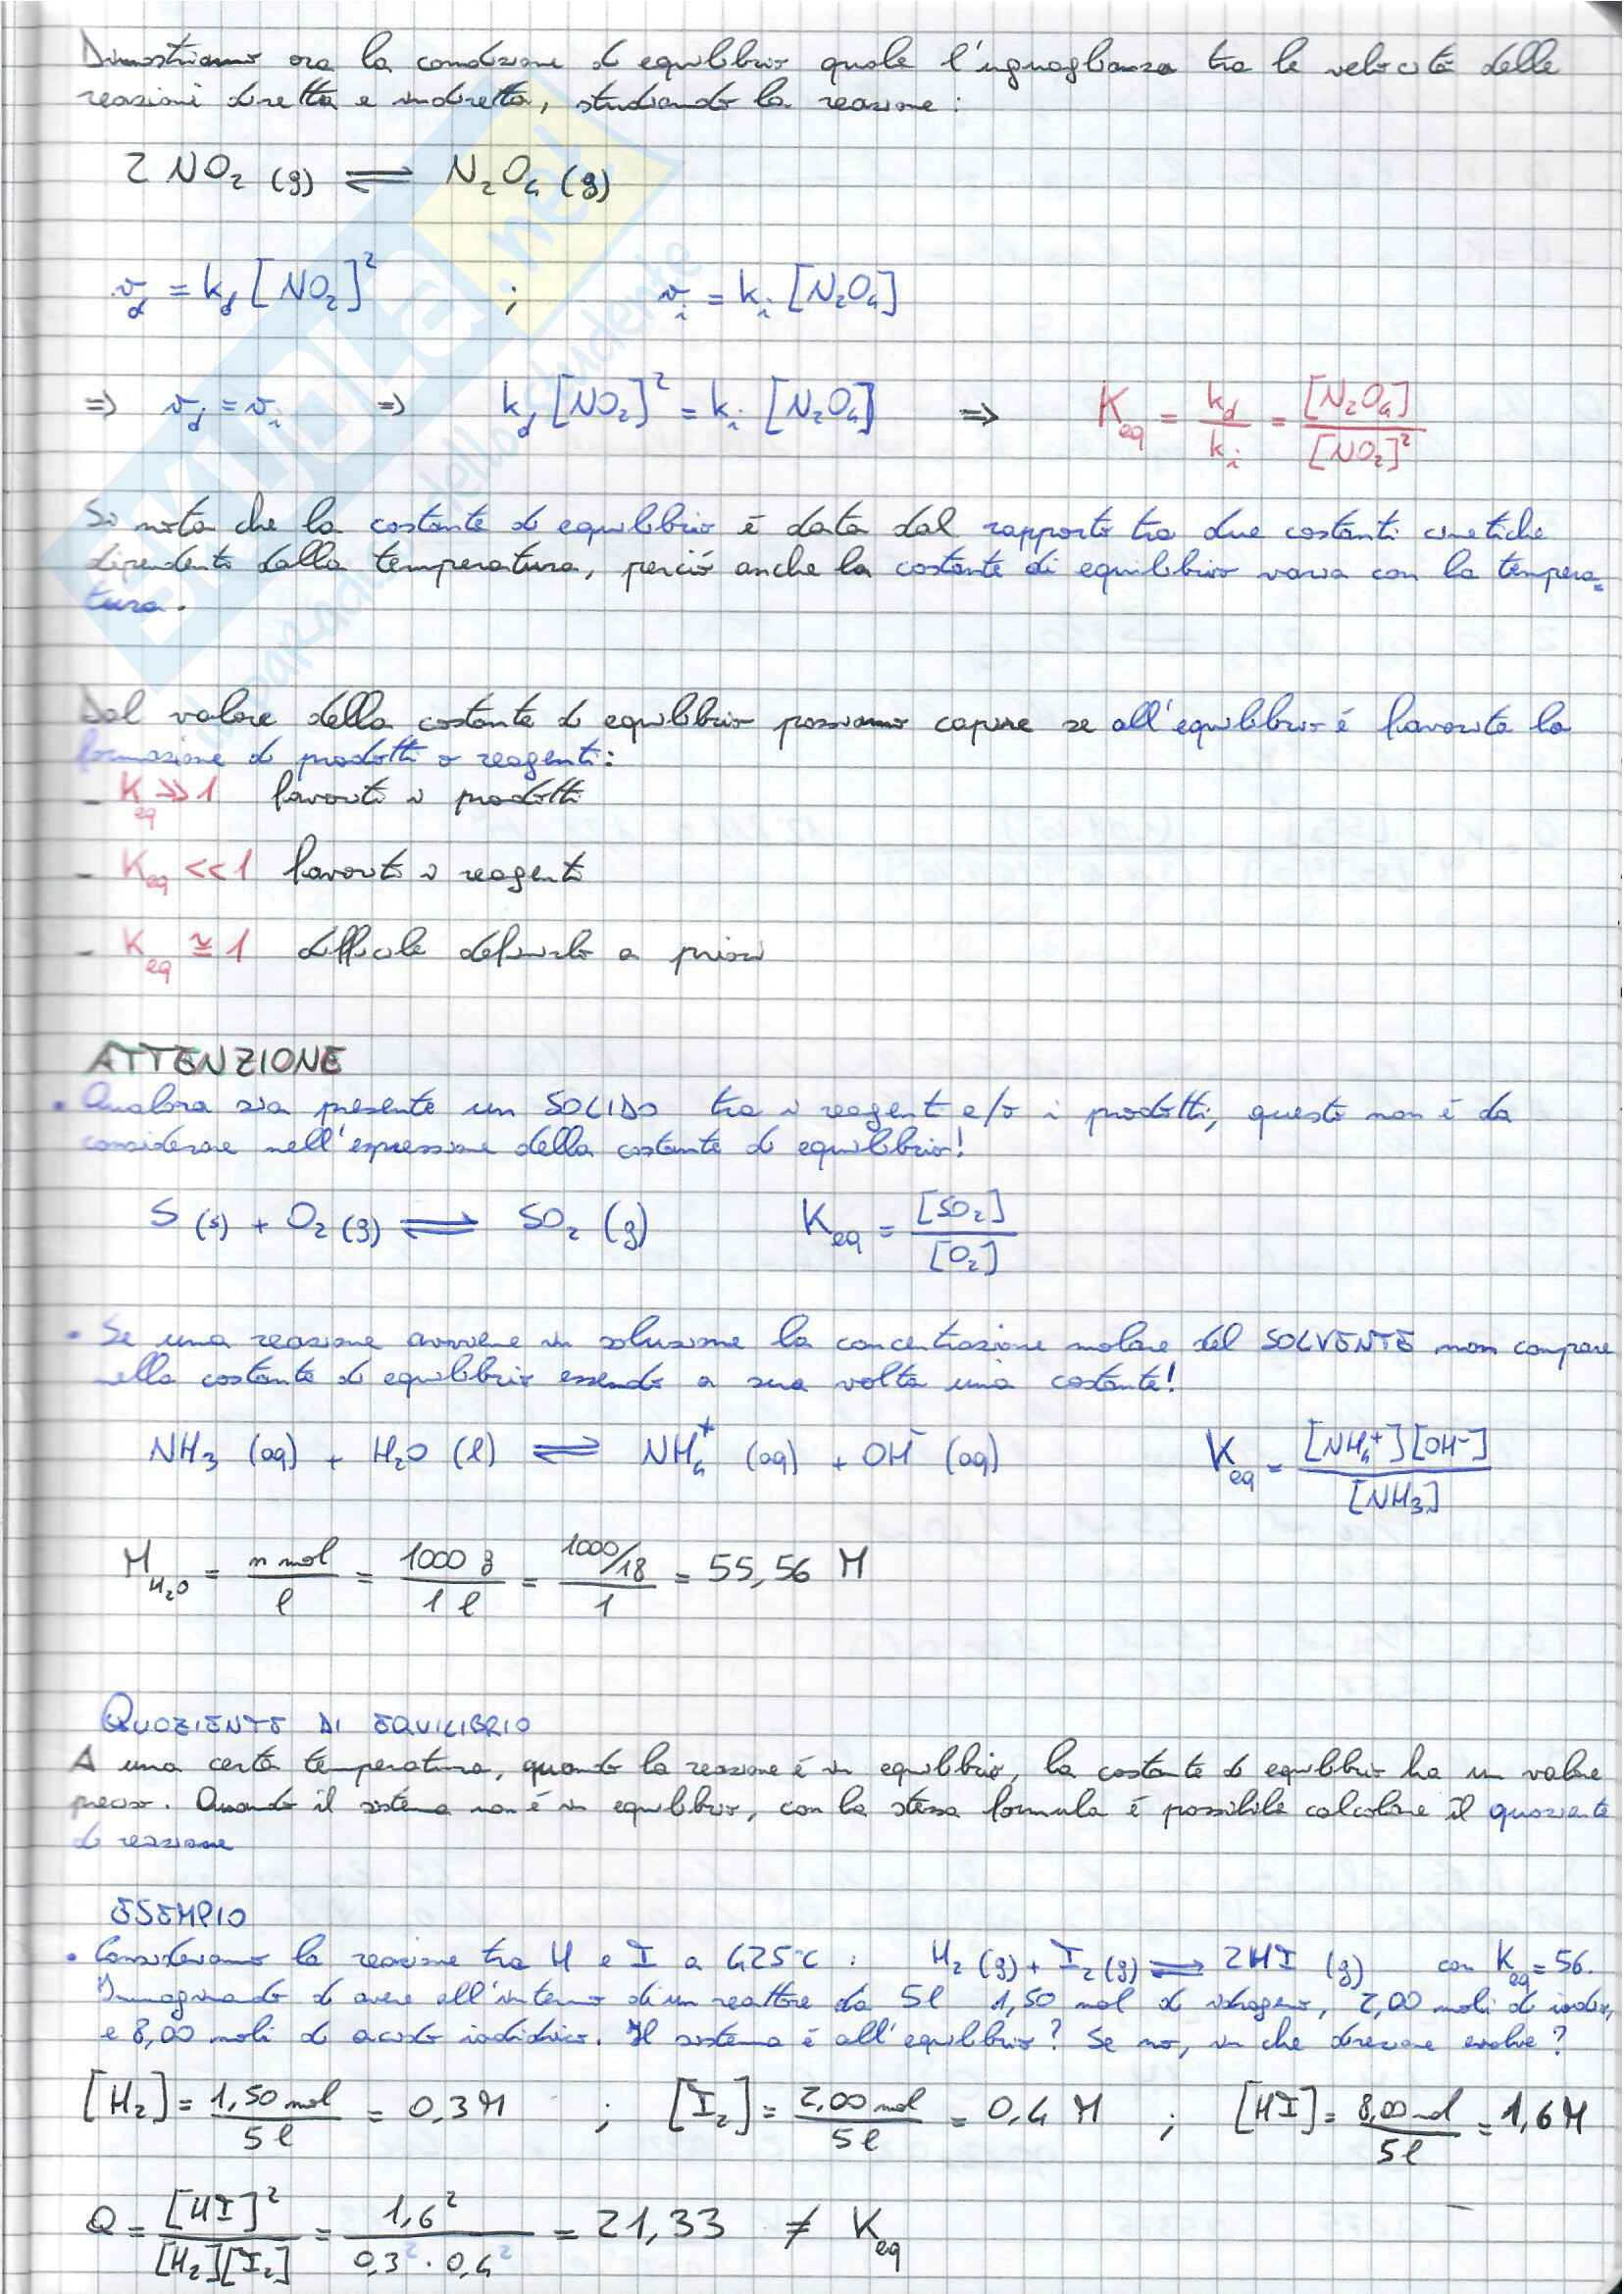 Dimostriamo ora la condizione di equilibrio quale l'uguaglianza tra le velocità delle
reazioni diretta e indiretta, studiando la reazione:
2 NO₂ (g) ⇌ N₂O₄ (g)
v_d = k_d [NO₂]² ; v_i = k_i [N₂O₄]
⇒ v_d = v_i ⇒ k_d [NO₂]² = k_i [N₂O₄] ⇒ K_eq = k_d / k_i = [N₂O₄] / [NO₂]²
Si nota che la costante di equilibrio è data dal rapporto tra due costanti cinetiche
dipendenti dalla temperatura, perciò anche la costante di equilibrio varia con la tempera=
tura.
Dal valore della costante di equilibrio possiamo capire se all'equilibrio è favorita la
formazione di prodotti o reagenti:
- K_eq >> 1 favoriti i prodotti
- K_eq << 1 favoriti i reagenti
- K_eq ≅ 1 difficile definirlo a priori
ATTENZIONE
• Qualora sia presente un SOLIDO tra i reagenti e/o i prodotti, questo non è da
considerare nell'espressione della costante di equilibrio!
S (s) + O₂ (g) ⇌ SO₂ (g) K_eq = [SO₂] / [O₂]
• Se una reazione avviene in soluzione la concentrazione molare del SOLVENTE non compare
nella costante di equilibrio essendo a sua volta una costante!
NH₃ (aq) + H₂O (l) ⇌ NH₄⁺ (aq) + OH⁻ (aq) K_eq = [NH₄⁺][OH⁻] / [NH₃]
M_H₂O = n mol / l = 1000 g / 1 l = 1000/18 / 1 = 55,56 M
QUOZIENTE DI EQUILIBRIO
A una certa temperatura, quando la reazione è in equilibrio, la costante di equilibrio ha un valore
preciso. Quando il sistema non è in equilibrio, con la stessa formula è possibile calcolare il quoziente
di reazione
ESEMPIO
• Consideriamo la reazione tra H e I a 425°C : H₂ (g) + I₂ (g) ⇌ 2HI (g) con K_eq = 56.
Immaginando di avere all'interno di un reattore da 5l 1,50 mol di idrogeno, 2,00 moli di iodio,
e 8,00 moli di acido iodidrico. Il sistema è all'equilibrio? Se no, in che direzione evolve?
[H₂] = 1,50 mol / 5 l = 0,3 M ; [I₂] = 2,00 mol / 5 l = 0,4 M ; [HI] = 8,00 mol / 5 l = 1,6 M
Q = [HI]² / [H₂][I₂] = 1,6² / 0,3² · 0,4² = 21,33 ≠ K_eq
SKUOLA.net